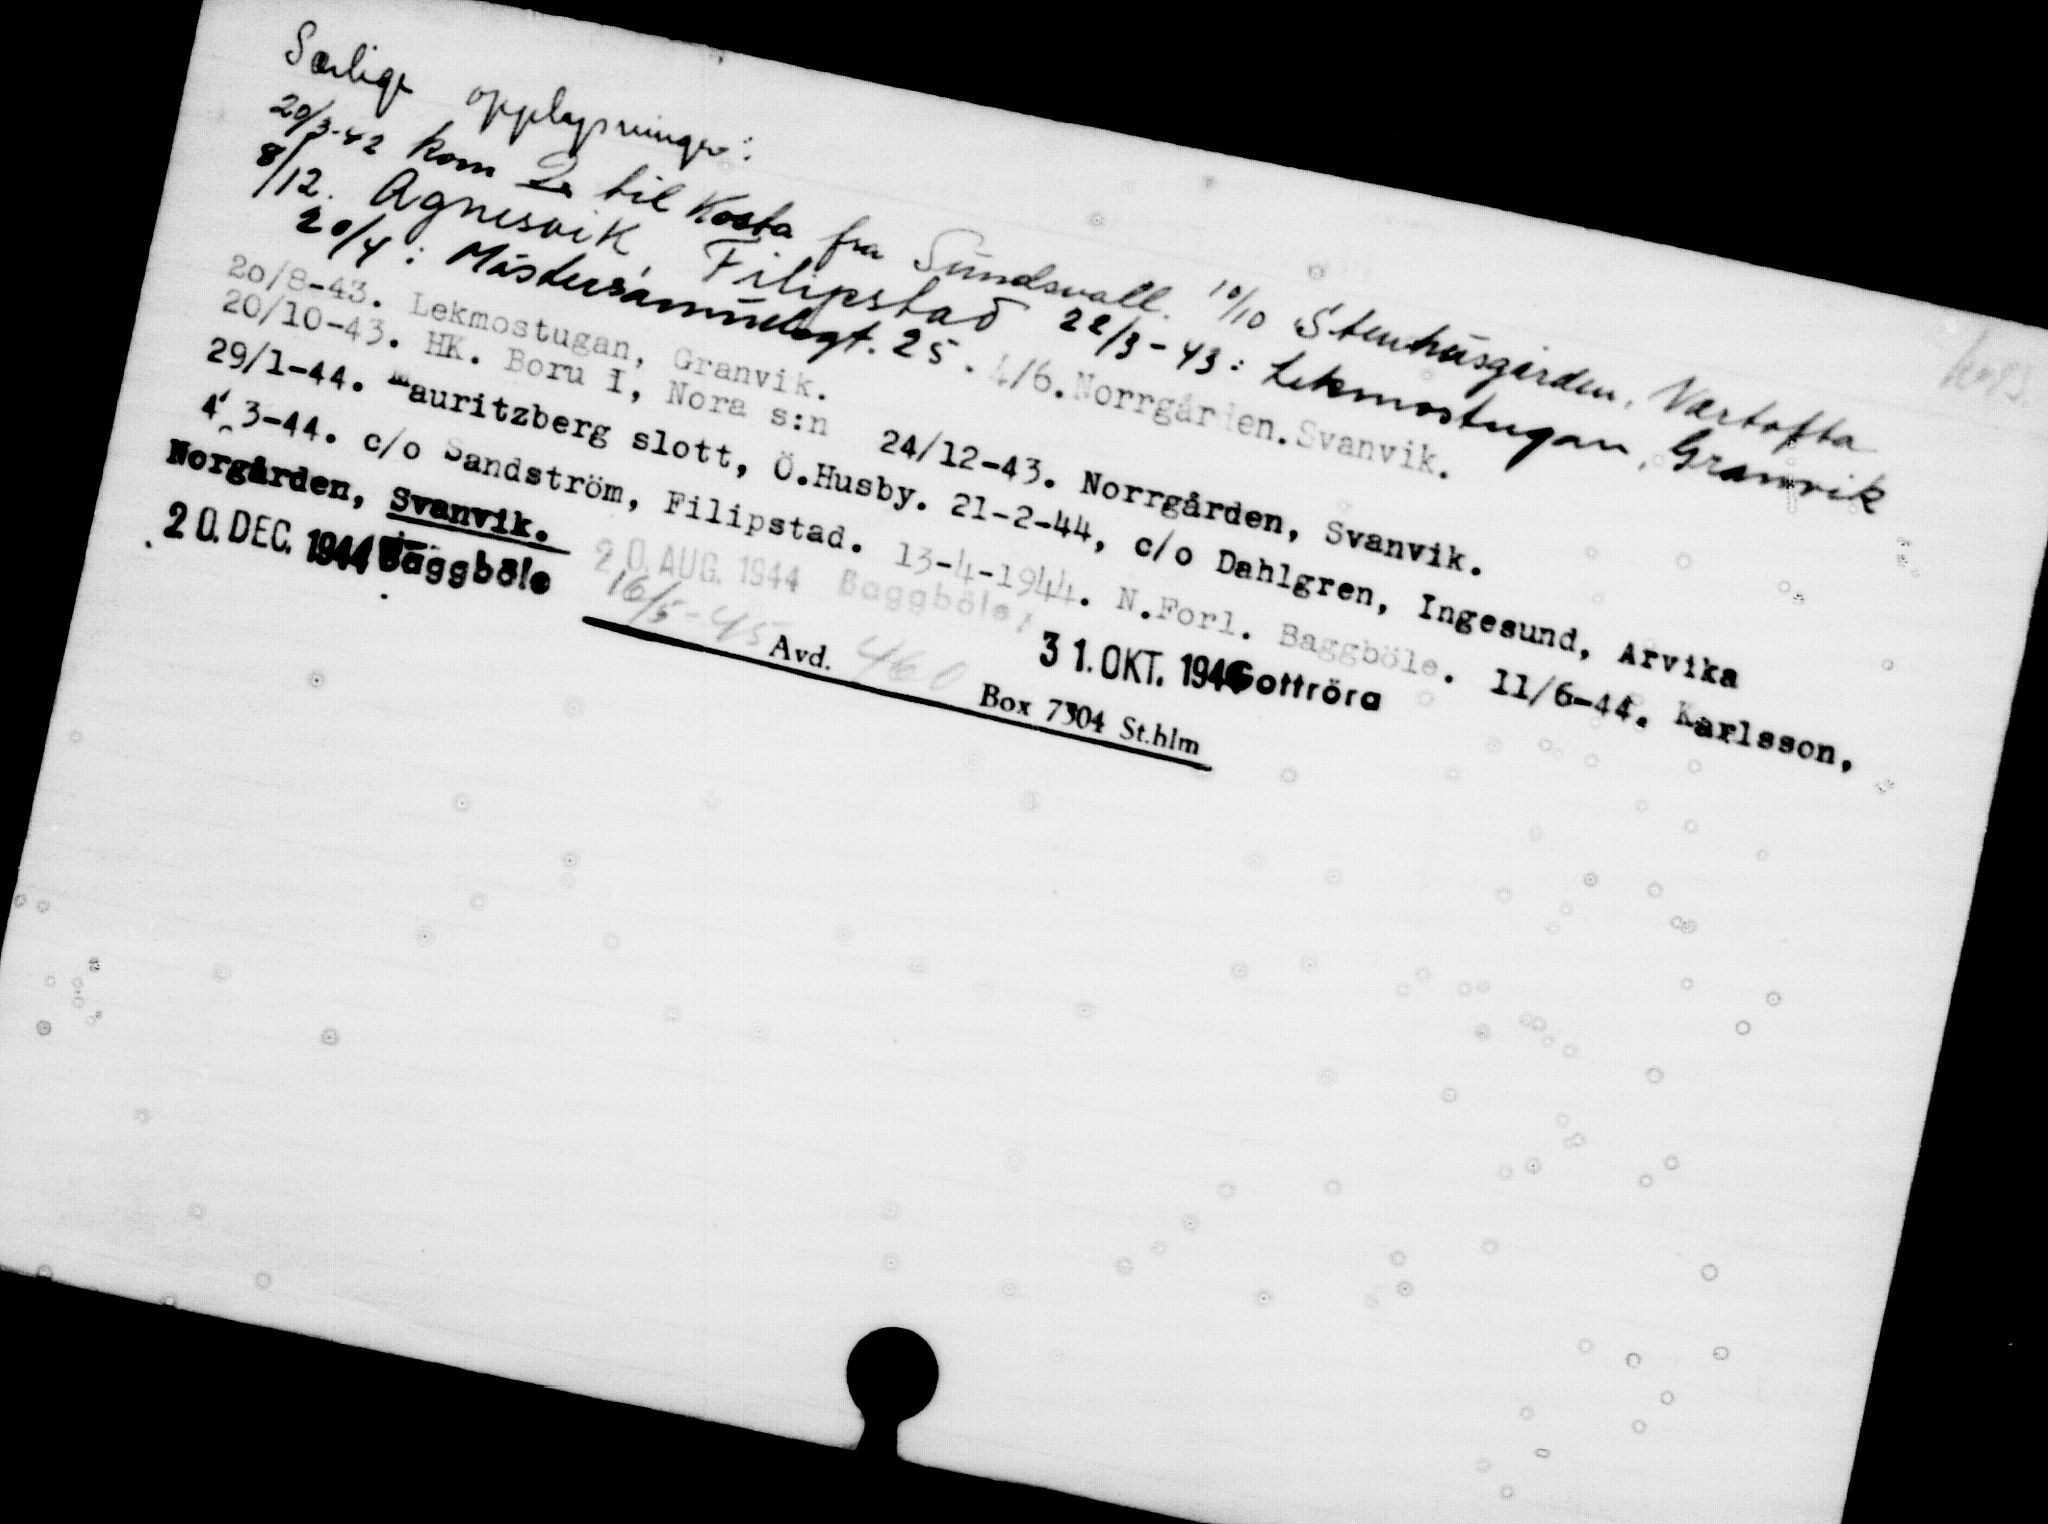 Særlige opplysninger:
20/3-42 kom D. til Kosta fra Sundsvall. 10/10 Stenhusgården, Vartofta
8/12. Agnesvik, Filipstad 22/3-43: Lekmostugan, Granvik
20/4: 25. 4/6. Norrgården. Svanvik.
20/8-43. Lekmostugan, Granvik.
20/10-43. HK. Boru I, Nora s:n 24/12-43. Norrgården, Svanvik.
29/1-44. Mauritzberg slott, Ö.Husby. 21-2-44, c/o Dahlgren, Ingesund, Arvika
4/3-44. c/o Sandström, Filipstad. 13-4-1944. N.Forl. Baggböle. 11/6-44. Karlsson,
Norgården, Svanvik. 20. AUG. 1944 Baggböle, 31. OKT. 1944 Gottröra
20. DEC. 1944 Baggböle 16/5-45 Avd. 460 Box 7304 St.hlm